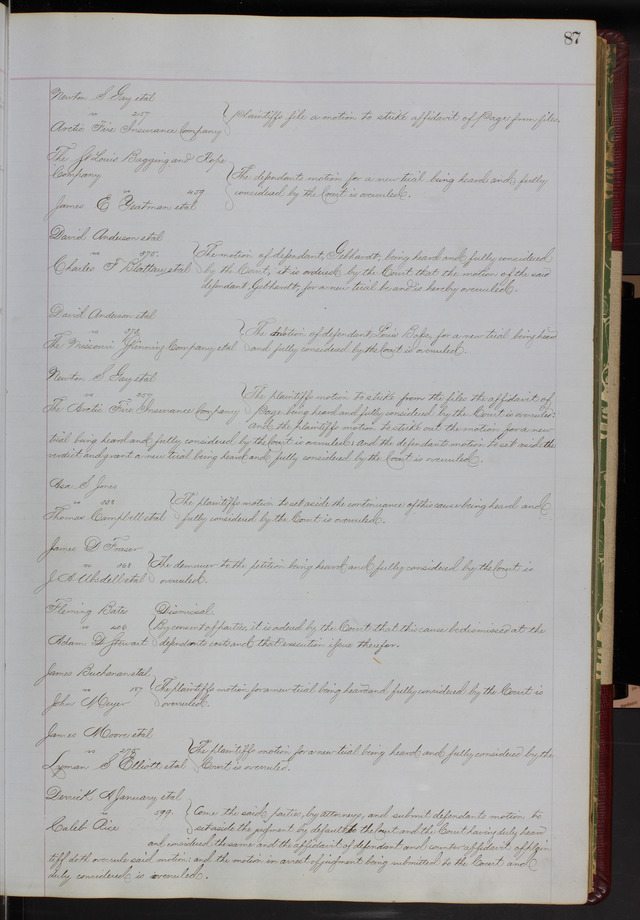 87
Newton S Gay etal
vs 257
Arctic Fire Insurance Company
Plaintiffs file a motion to strike affidavit of Page from files.
The St Louis Bagging and Rope
Company
vs 459
James E Yeatman etal
The defendants motion for a new trial being heard and fully
considered by the Court is overruled.
David Anderson etal
vs
Charles F Blattau etal
The motion of defendant, Gebhardt, being heard and fully considered
by the Court, it is ordered by the Court that the motion of the said
defendant Gebhardt, for a new trial be and is hereby overruled.
David Anderson etal
vs
The Missouri Company etal
The motion of defendant Louis for a new trial being heard
and fully considered by the Court is overruled.
Newton S Gay etal
vs 257
The Arctic Fire Insurance Company
The plaintiffs motion to strike from the files the affidavit of
Page being heard and fully considered by the Court is overruled:
and the plaintiffs motion to strike out the motion for a new
trial being heard and fully considered by the Court is overruled; and the defendants motion to set aside the
verdict and grant a new trial being heard and fully considered by the Court is overruled.
Asa S Jones
vs
Thomas Campbell etal
The plaintiffs motion to set aside the continuance of this cause being heard and
fully considered by the Court is overruled.
James D Fraser
vs
J A Ubsdell etal
The demurrer to the petition being heard and fully considered by the Court is
overruled.
Fleming Bates
vs
Adam D Stewart
Dismissal.
By consent of parties, it is ordered by the Court that this cause be dismissed at the
defendants costs and that execution issue therefor.
James Buchanan etal
vs 157
John Meyer
The plaintiffs motion for a new trial being heard and fully considered by the Court is
overruled.
James Moore etal
vs
Lyman S Elliott etal
The plaintiffs motion for a new trial being heard and fully considered by the
Court is overruled.
Derrick A January etal
vs 599.
Caleb Rice
Come the said parties, by attorneys, and submit defendants motion to
set aside the judgment by default to the Court and the Court having duly heard
and considered the same and the affidavit of defendant and counter affidavit of plain-
tiff doth overrule said motion: and the motion in arrest of judgment being submitted to the Court and
duly considered is overruled.